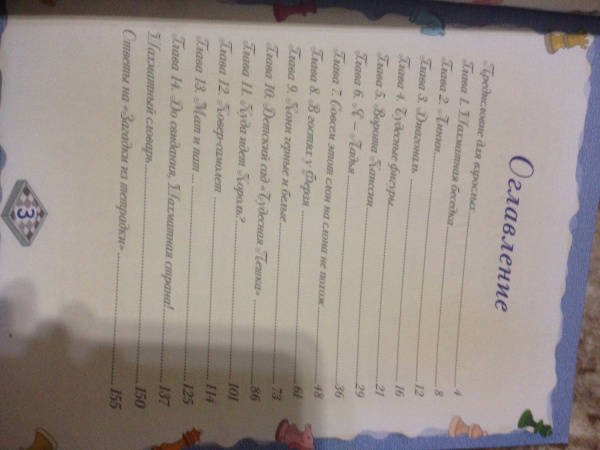 Оглавление
Предисловие для взрослых 4
Глава 1. Шахматная беседка 8
Глава 2. Линии 12
Глава 3. Диагональ 16
Глава 4. Чудесные фигуры 21
Глава 5. Ворота Каиссии 29
Глава 6. Я – Ладья 36
Глава 7. Совсем этот слон на слона не похож 48
Глава 8. В гостях у Ферзя 61
Глава 9. Кони черные и белые 73
Глава 10. Детский сад «Чудесная Пешка» 86
Глава 11. Куда идет Король? 101
Глава 12. Ковер-самолет 114
Глава 13. Мат и пат 125
Глава 14. До свидания, Шахматная страна! 137
Шахматный словарь 150
Ответы на «Загадки из тетрадки» 155
3